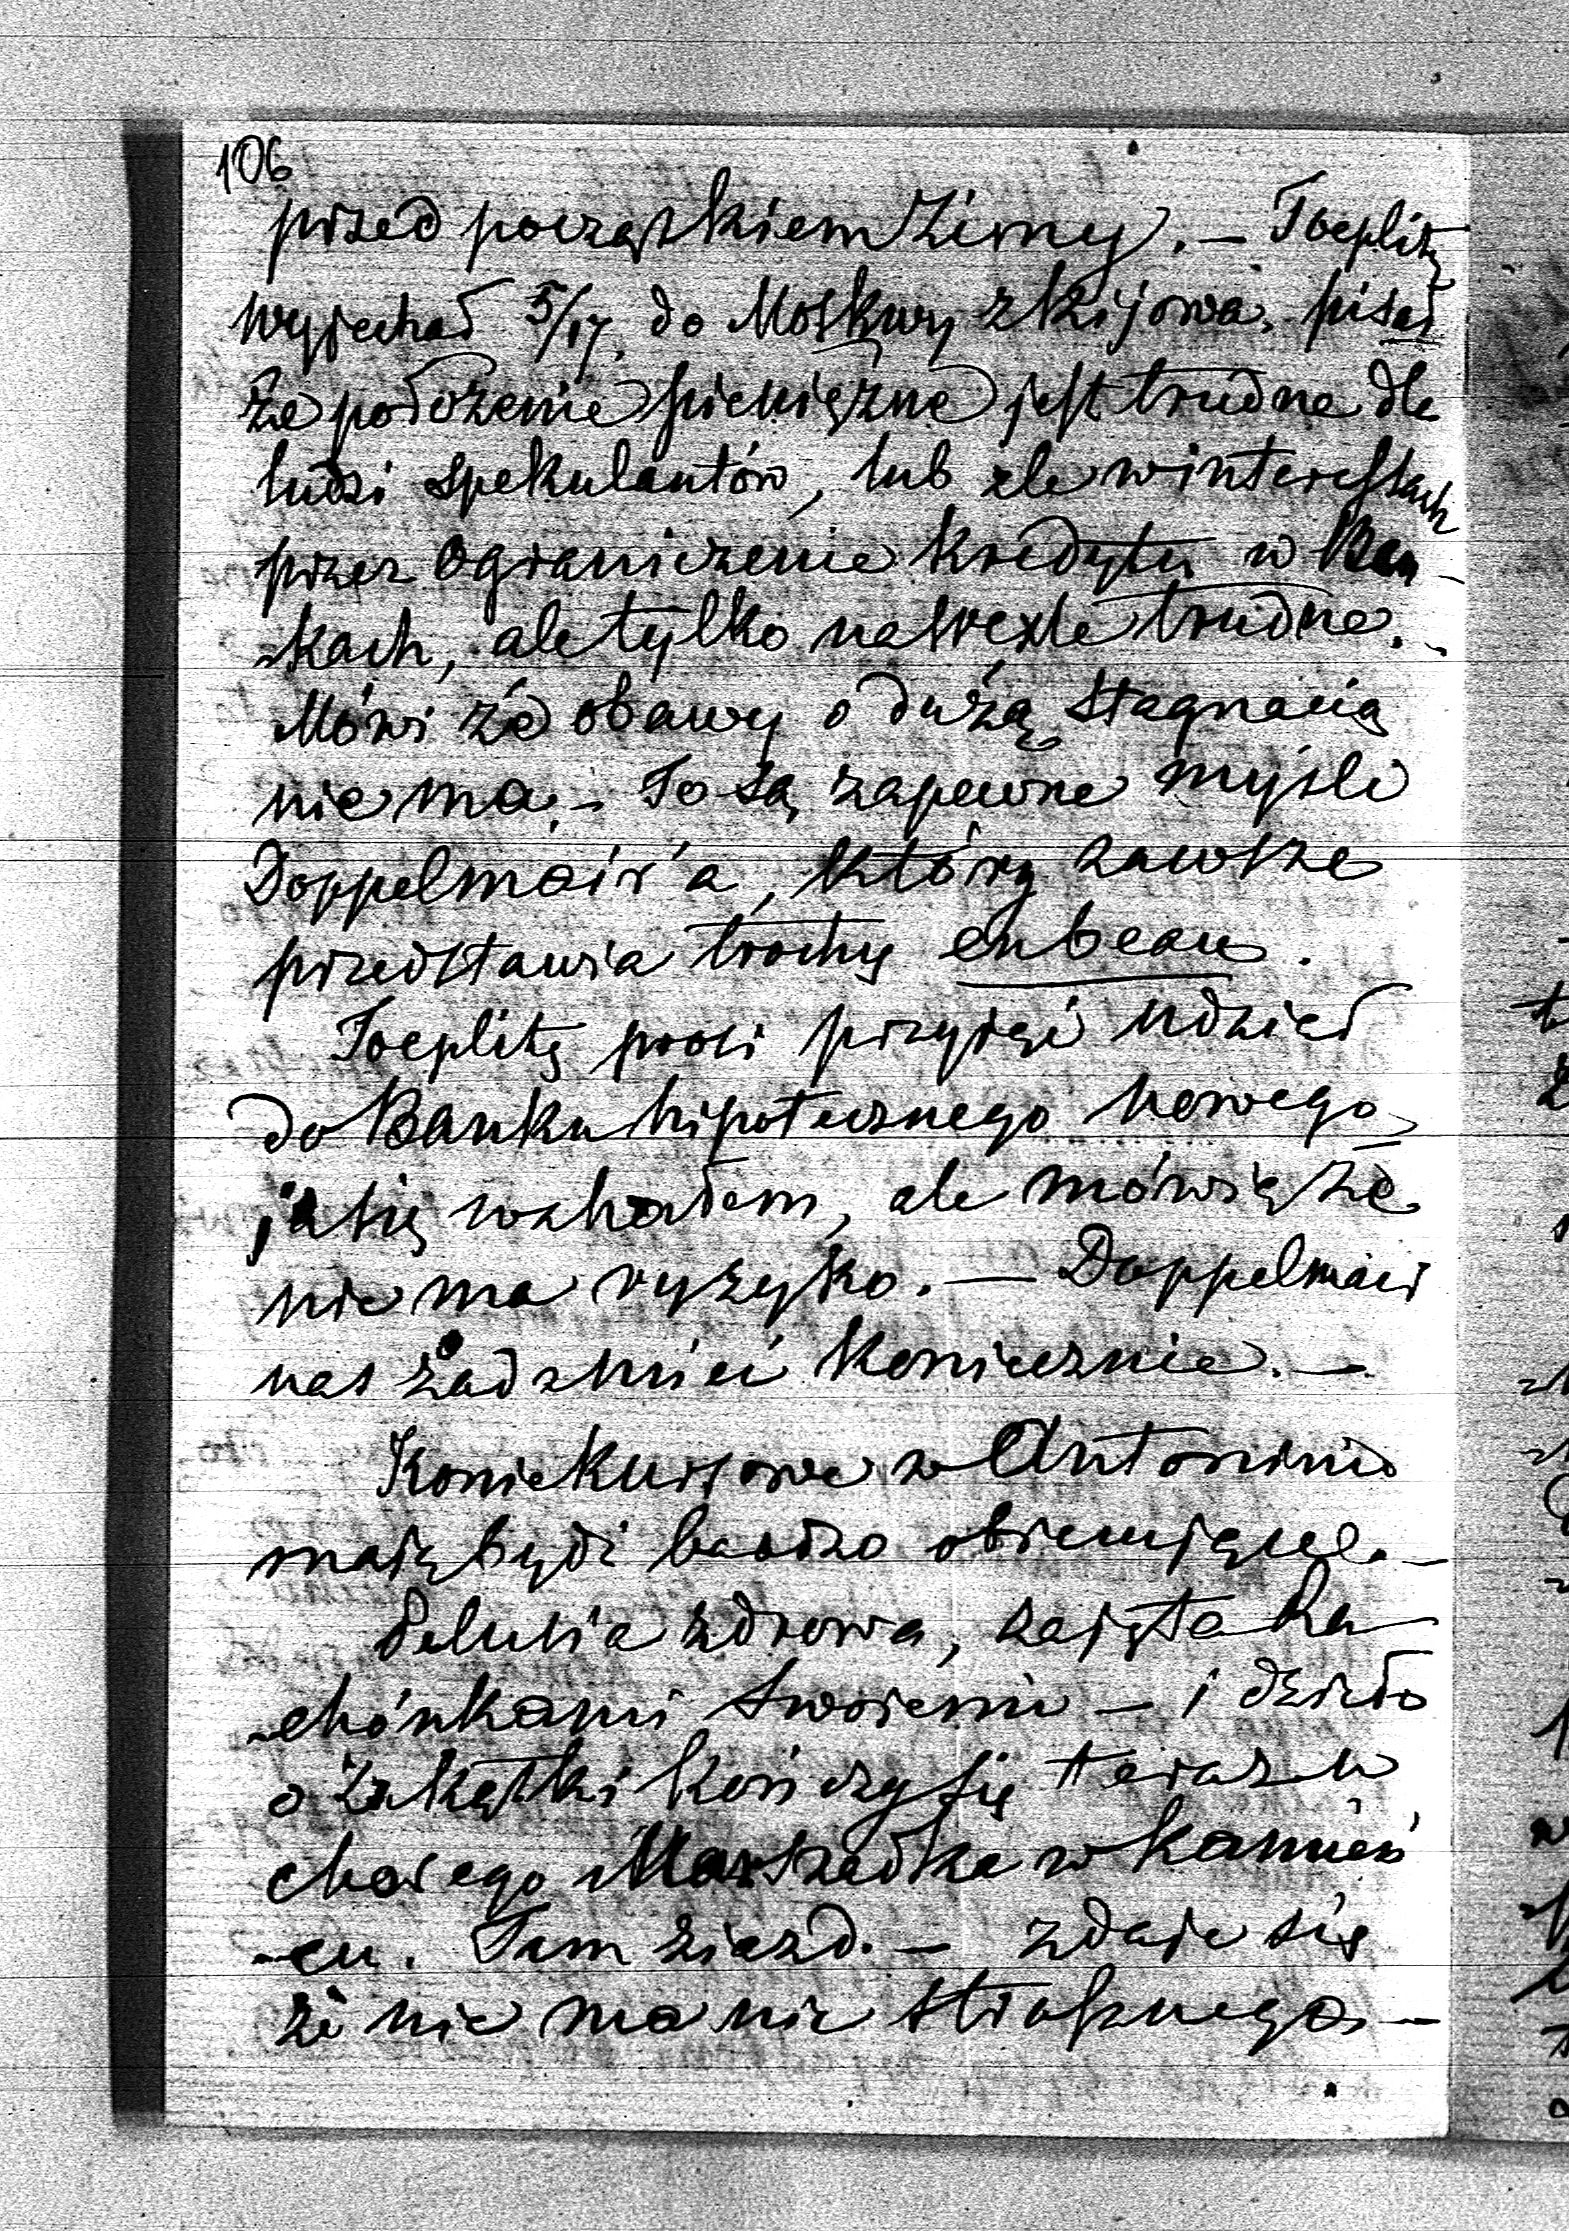 106
przed początkiem Zimy. — Toeplitz
wyjechał 5/17. do Moskwy z Kijowa. pisał
że położenie pieniężne jest trudne dla
ludzi spekulantów, lub źle w interessach
przez ograniczenie kredytu w Ban-
-kach, ale tylko na wexle trudne. -
Mówi że obawy o dużą stagnacią
nie ma. - To są zapewne myśli
Doppelmair'a, który zawsze
przedstawia trochę en beau.
Toeplitz prosi przyjąć udział
do Banku hipotecznego nowego
ja się wahałem, ale mówią że
nie ma ryzyko. — Doppelmair
nas żąda mieć koniecznie. —
Konie kursowe w Antoninie
mają bydź bardzo obiecujące. —
zdrowa, zajęta Ra-
-chónkami swojemi — i dzieło
o Zakątki kończy się teraz u
chorego Marszałka w Kamień-
-cu. Tam zjazd. — zdaje się
że nie ma nic strasznego. —